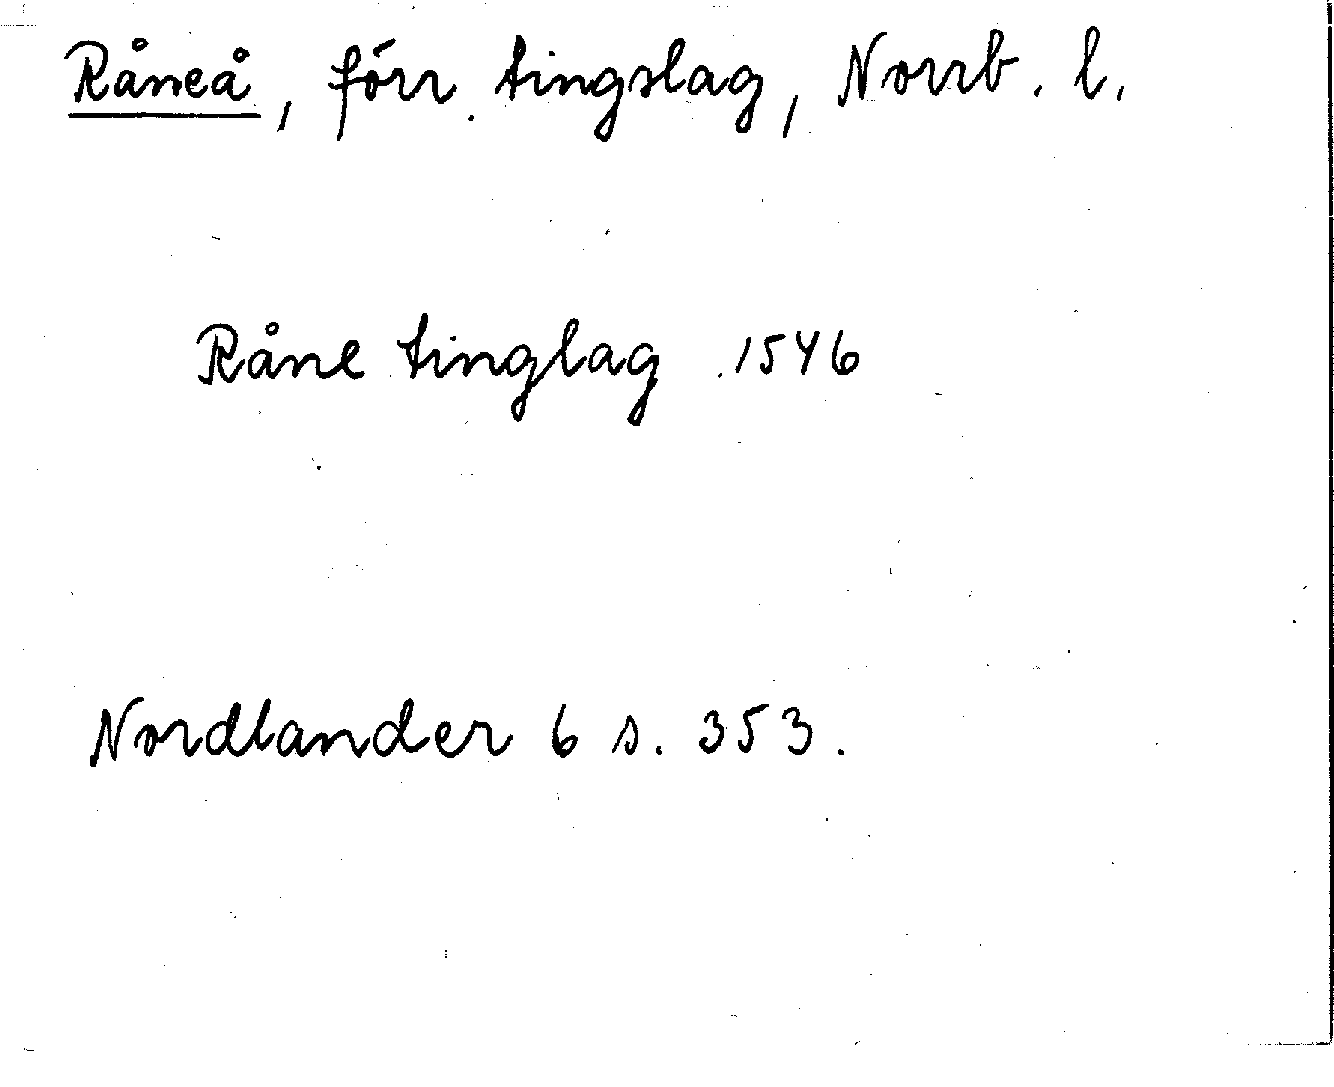 Råneå, förr. tingslag, Norrb. l.
Råne tinglag 1546
Nordlander 6 s. 353.